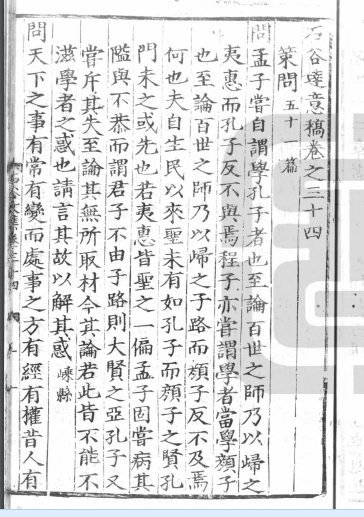 石谷達意稿卷之三十四
策問 五十一篇
問孟子嘗自謂學孔子者也至論百世之師乃以歸之
夷惠而孔子反不與焉程子亦嘗謂學者當學顏子
也至論百世之師乃以歸之子路而顏子反不及焉
何也夫自生民以來聖未有如孔子而顏子之賢孔
門未之或先也若夷惠皆聖之一偏孟子固嘗病其
隘與不恭而謂君子不由子路則大賢之亞孔子又
嘗斥其失至論其無所取材今其論若此皆不能不
滋學者之惑也請言其故以解其惑 嵊縣
問天下之事有常有變而處事之方有經有權昔人有